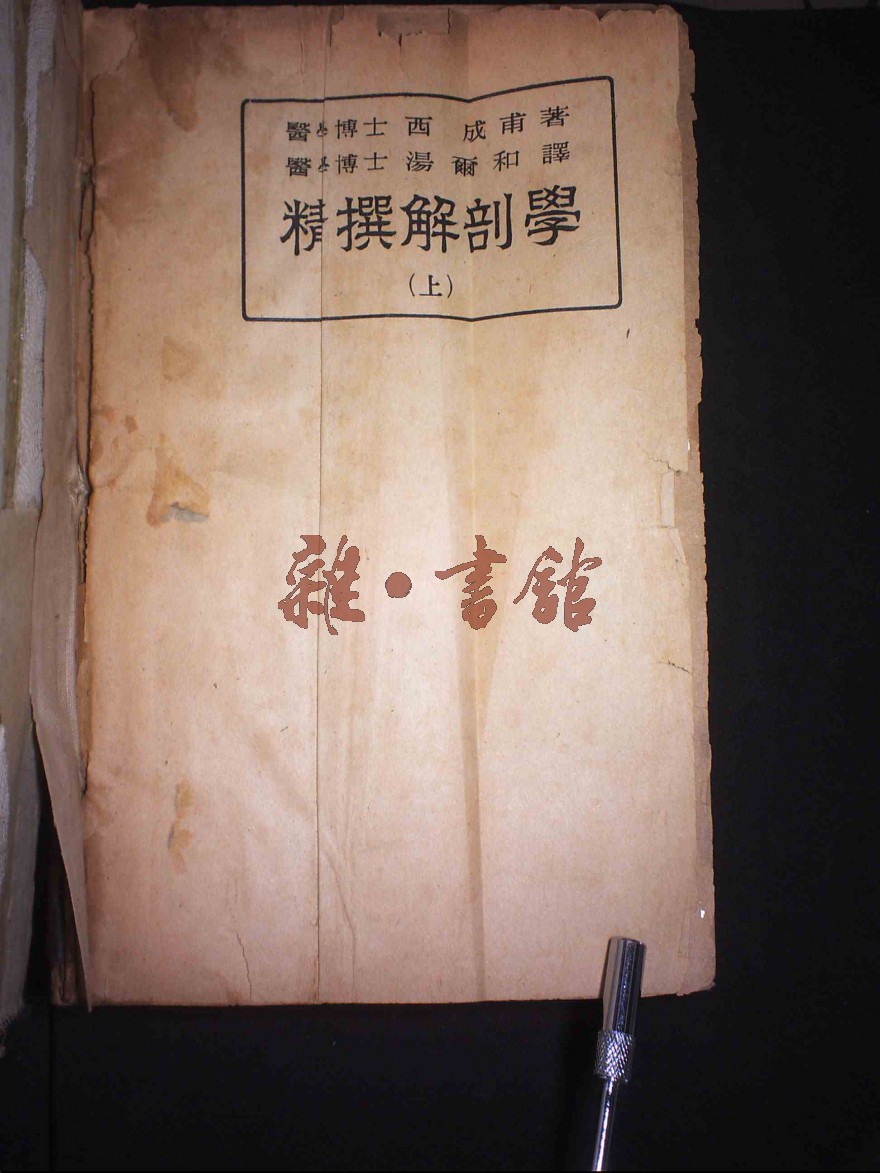 醫學博士西成甫著
醫學博士湯爾和譯
精撰解剖學
(上)
雜·書館